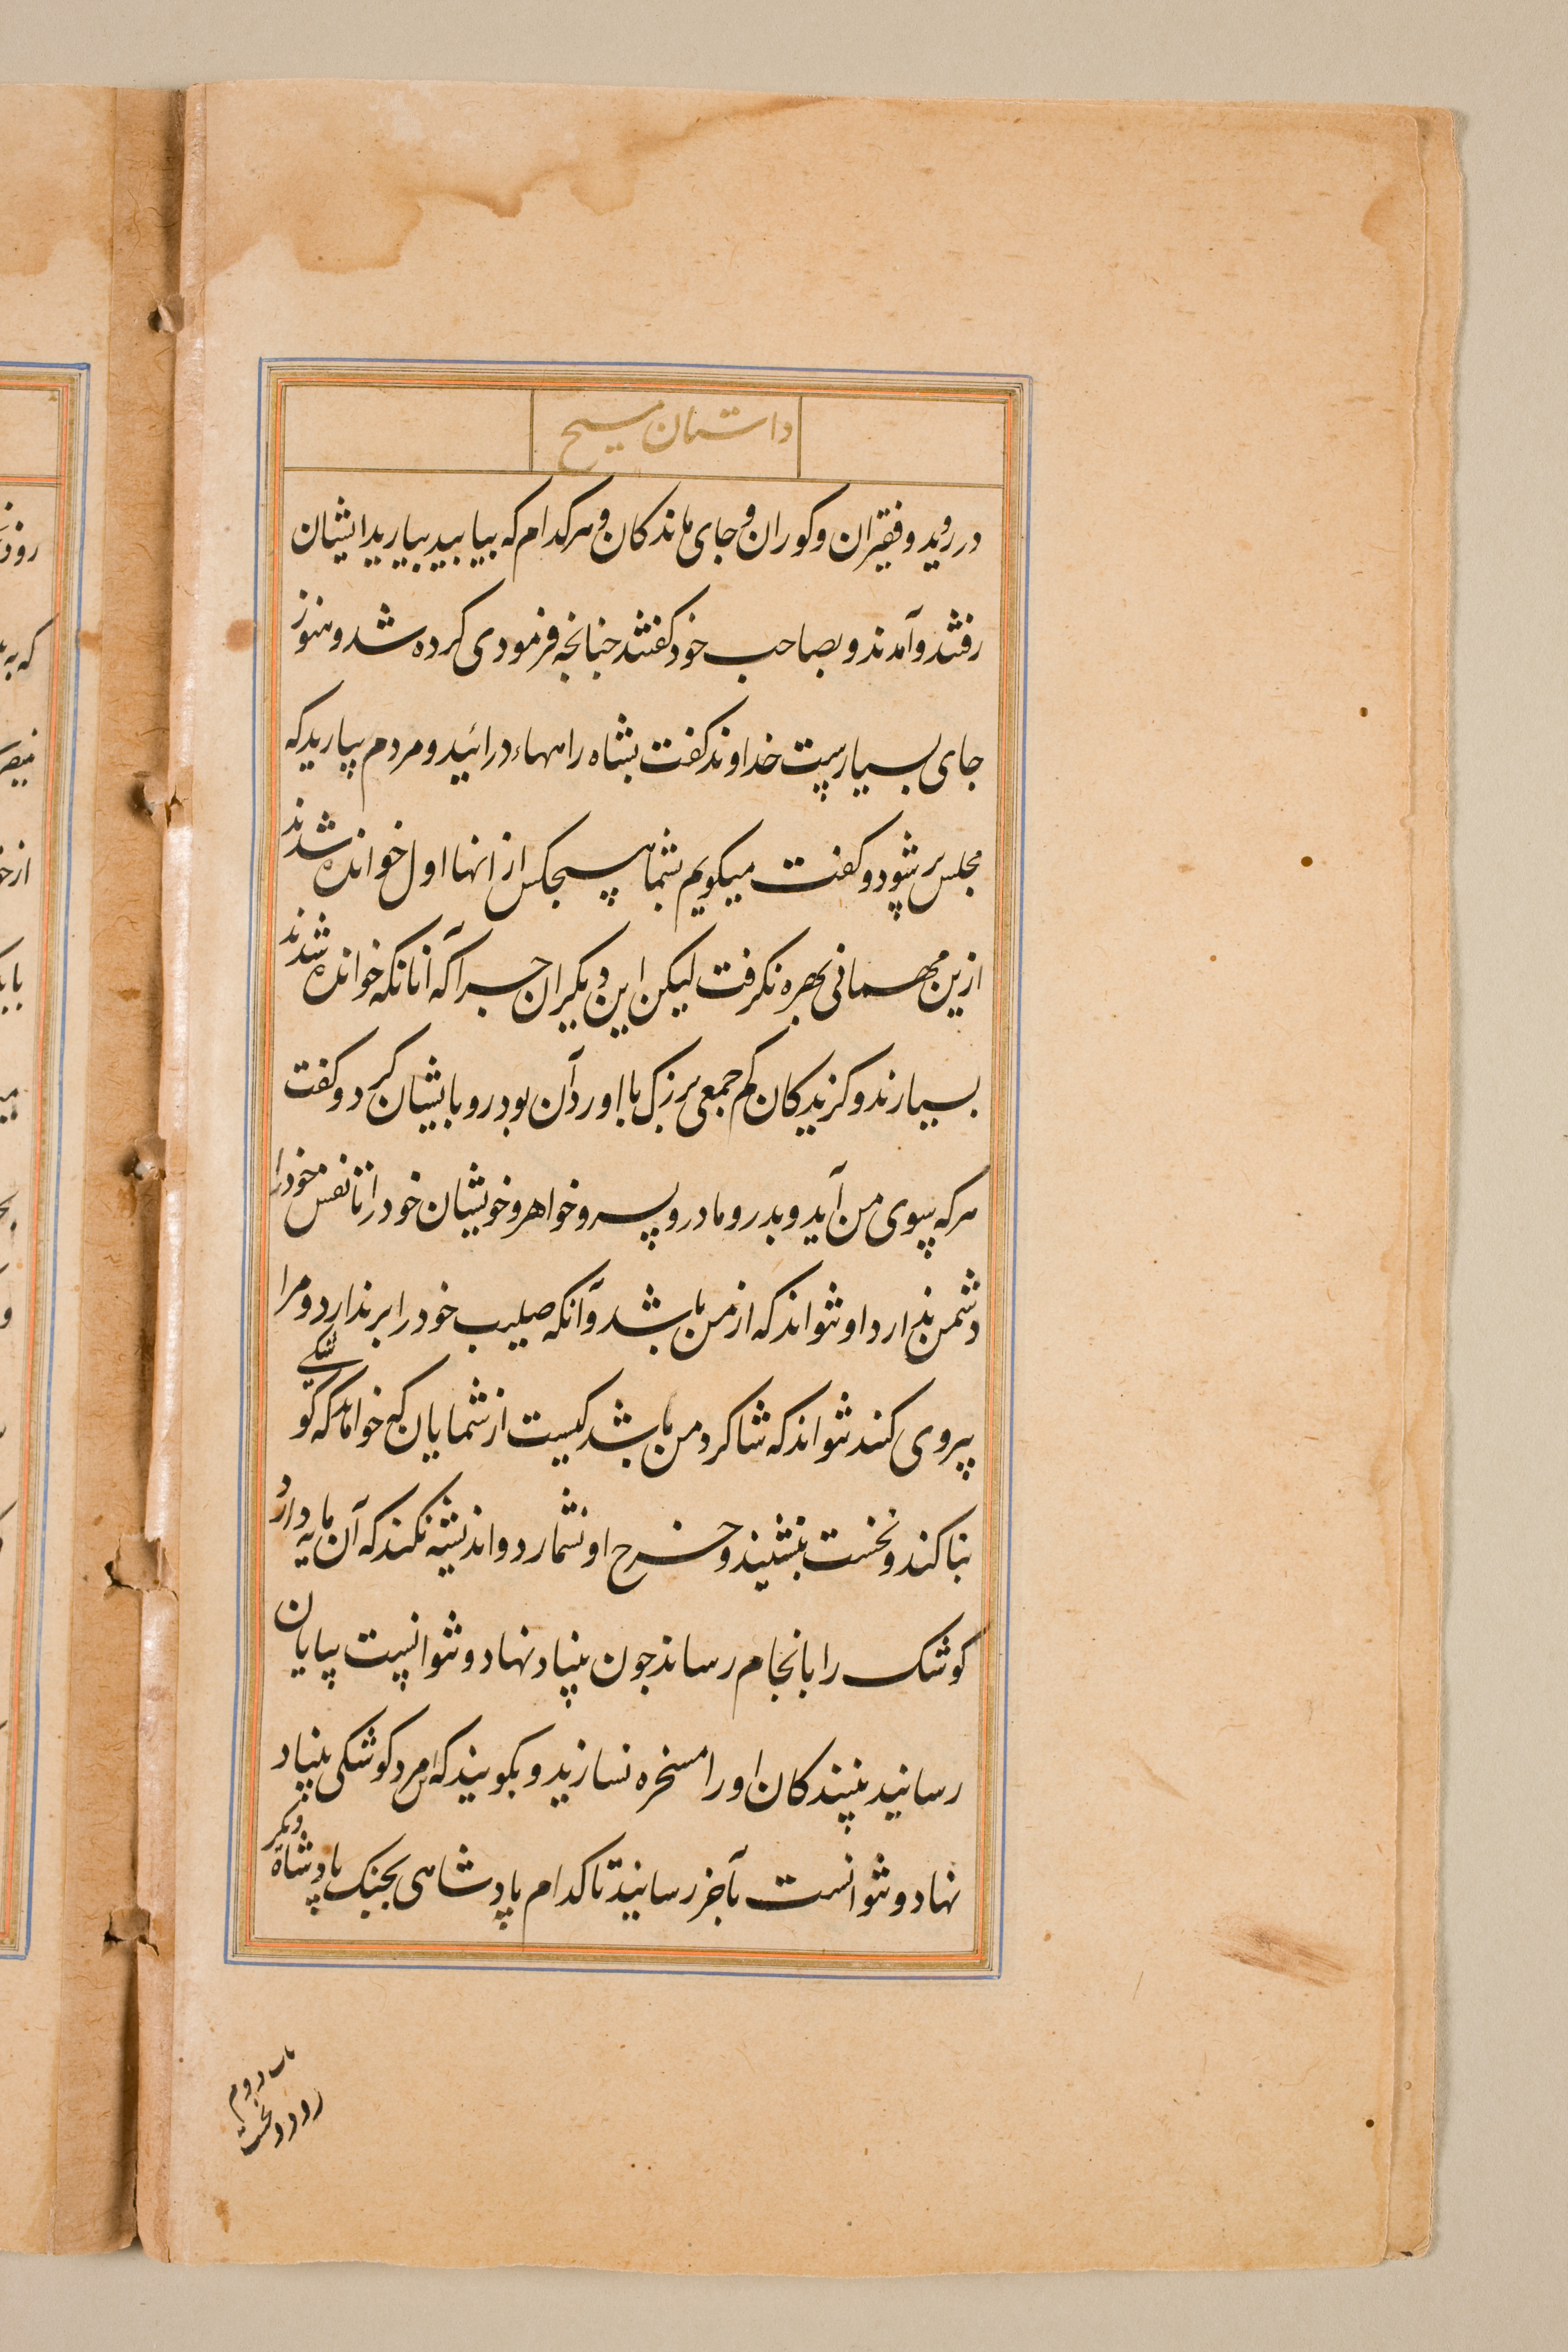 داستان مسیح
در روید و فقیران و کوران و جای ماندکان و هرکدام که بیابید بیارید ایشان
رفتند و آمدند و بصاحب خود کفتند جنانجه فرمودی کرده شد و هنوز
جای بسیارست خداوند کفت بشاه راهها درائید و مردم بیارید که
مجلس پر شود و کفت میکویم بشما هیچکس از انها اول خوانده شدند
ازین مهمانی بهره نکرفت لیکن این دیکران جرا که آنانکه خوانده شدند
بسیارند و کزیدکان کم جمعی بزرک با او درآن بود رو بایشان کرد و کفت
هرکه بسوی من آید و بدر و مادر و پسر و خواهر و خویشان خود را تا نفس خود را
دشمن ندارد او نتواند که از من باشد و آنکه صلیب خود را برندارد و مرا
پیروی کند نتواند که شاکرد من باشد کیست از شمایان که خواهد که کوشکی
بنا کند و نخست بنشیند و خرج او نشمارد و اندیشه نکند که آن مایه دارد
کوشک را بانجام رساند جون بنیاد نهاد و نتوانست بپایان
رسانید بینندکان او را مسخره نسازید و بکویند که این مرد کوشکی بنیاد
نهاد و نتوانست بآخر رسانید تا کدام پادشاهی بجنک پادشاه دیکر
رود و نخست